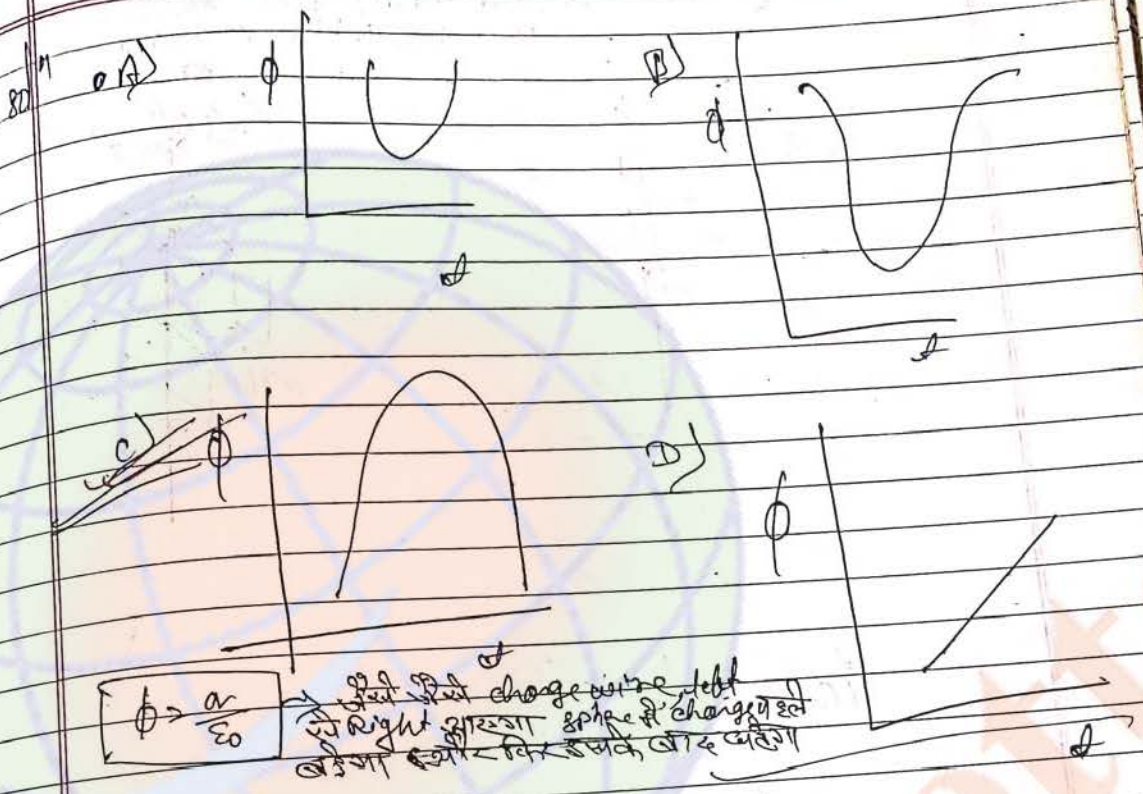 A) ϕ
B) ϕ
d
d
C) ϕ
D) ϕ
d
ϕ = q/ε₀ → जैसे जैसे charge wire left
से Right जाएगा sphere में charge पहले
बढ़ेगा और फिर उसके बाद घटेगा
d